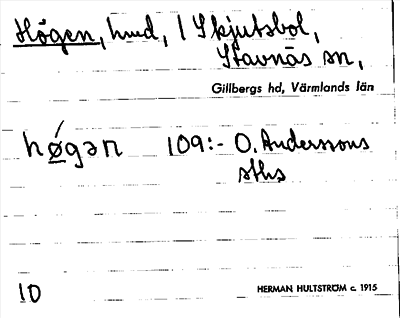 Högen, hmd, 1 Skjutsbol,
Stavnäs sn,
Gillbergs hd, Värmlands län
hǿ̱gən 109:- O. Anderssons
sths
10
HERMAN HULTSTRÖM c. 1915